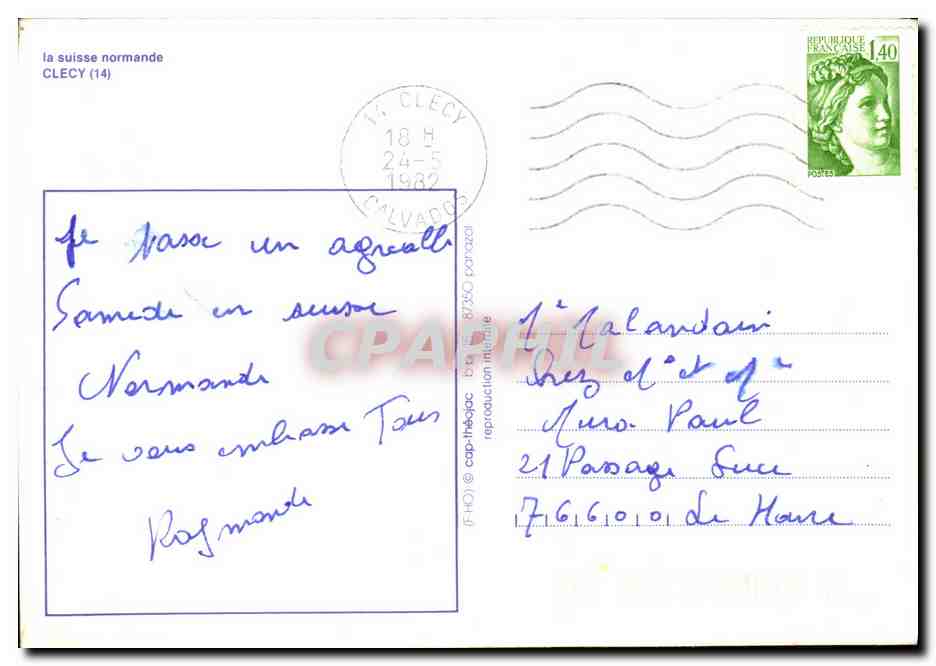 la suisse normande
CLECY (14)
14 CLECY
18 H
24-5
1982
CALVADOS
REPUBLIQUE
FRANÇAISE 1,40
POSTES
Je passe un agréable
Samedi en suisse
Normande
Je vous embrasse Tous
Raymonde
(F-HO) © cap-théojac 87350 panazol
reproduction interdite
CPAPHIL
Malandain
chez Mr et Me
Paul
21 Passage
76600 Le Havre